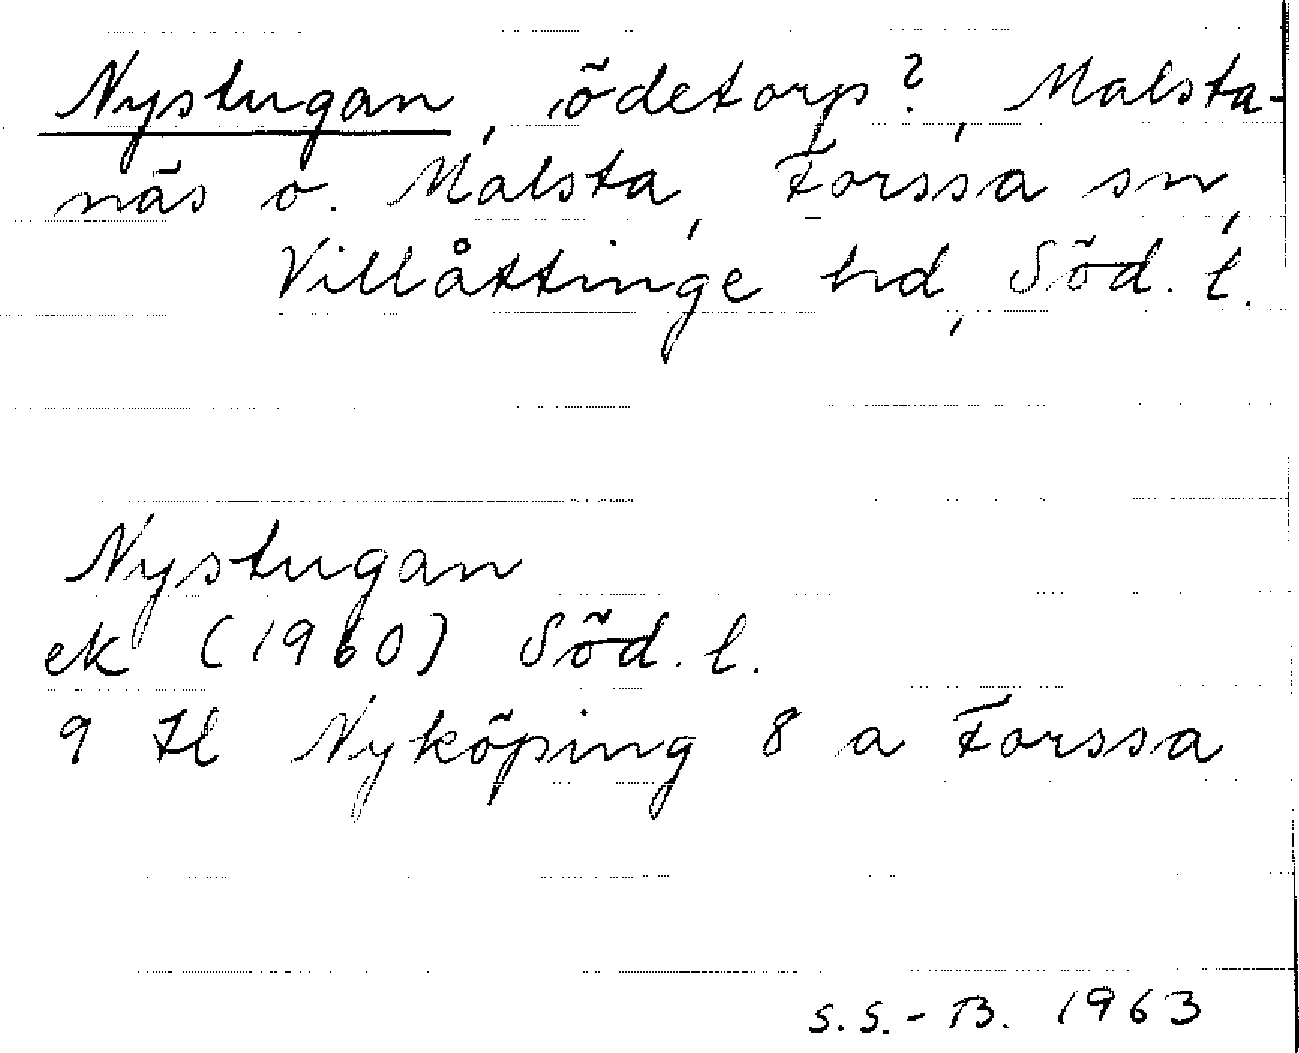 Nystugan, ödetorp?, Malsta-
näs o. Malsta, Forssa sn,
Villåttinge hd, Söd. l.
Nystugan
ek (1960) Söd. l.
9 Hl Nyköping 8 a Forssa
S.S.-B. 1963